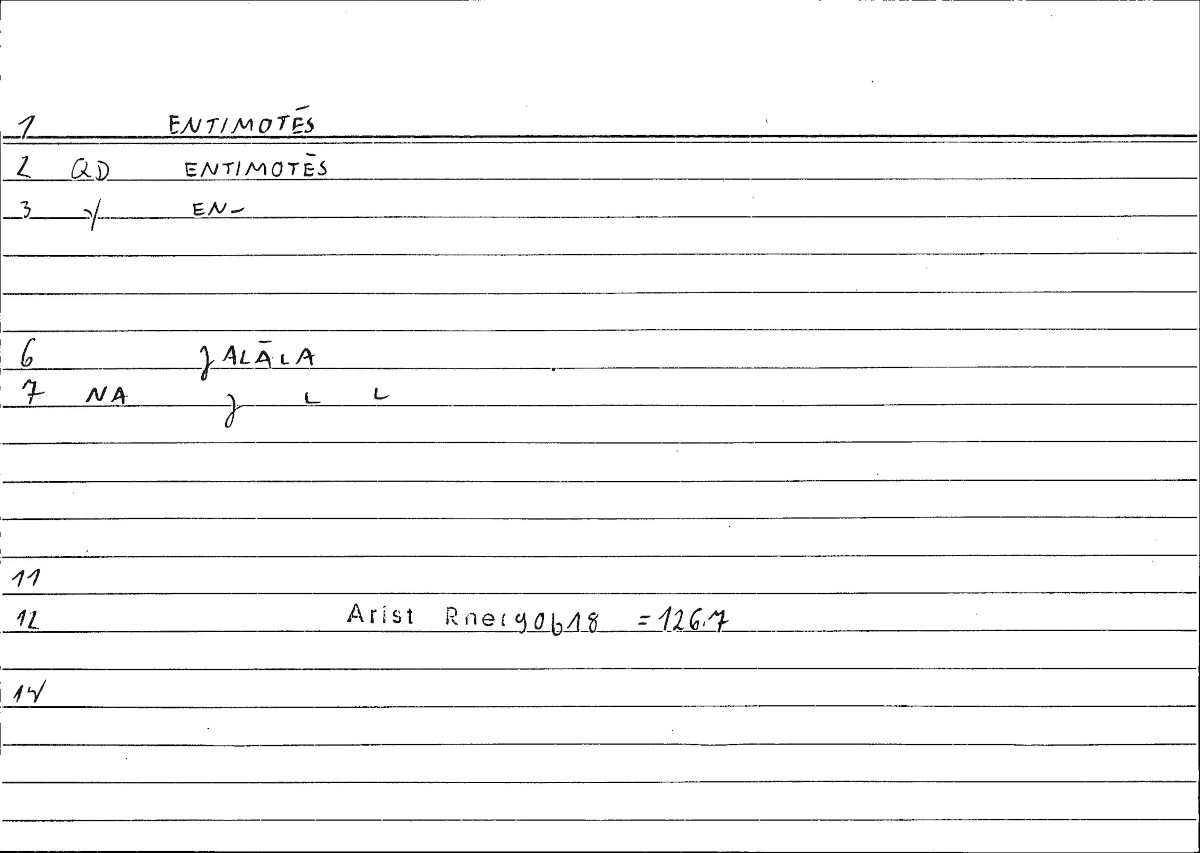 1 ENTIMOTĒS
2 QD ENTIMOTĒS
3 EN-
6 ʒALĀLA
7 NA ʒ L L
11
12 Arist Rhet 90b18 =126.7
14